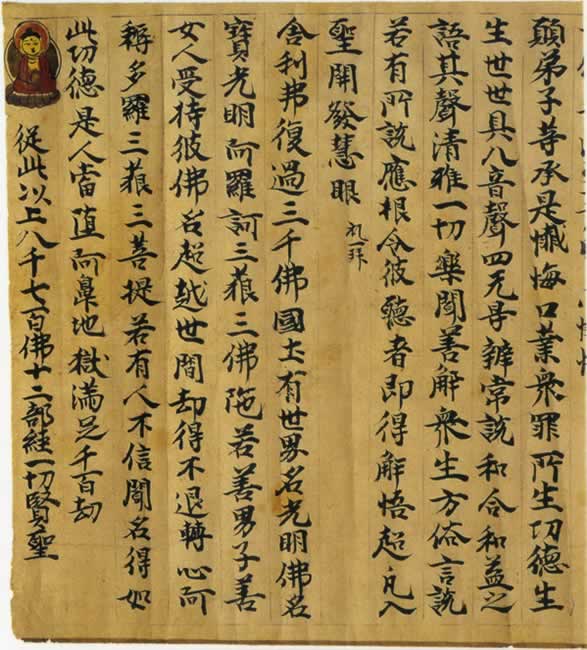 願弟子等承是懺悔口業衆罪所生功德生
生世世具八音聲四无㝵辯常說和合和益之
語其聲清雅一切樂聞善解衆生方俗言說
若有所說應根令彼聽者即得解悟超凡入
聖開發慧眼 礼一拜
舍利弗復過三千佛國土有世界名光明佛名
寶光明阿羅訶三藐三佛陁若善男子善
女人受持彼佛名超越世間却得不退轉心阿
耨多羅三藐三菩提若有人不信聞名得如
此功德是人當墮阿鼻地獄滿足千百劫
從此以上八千七百佛十二部經一切賢聖